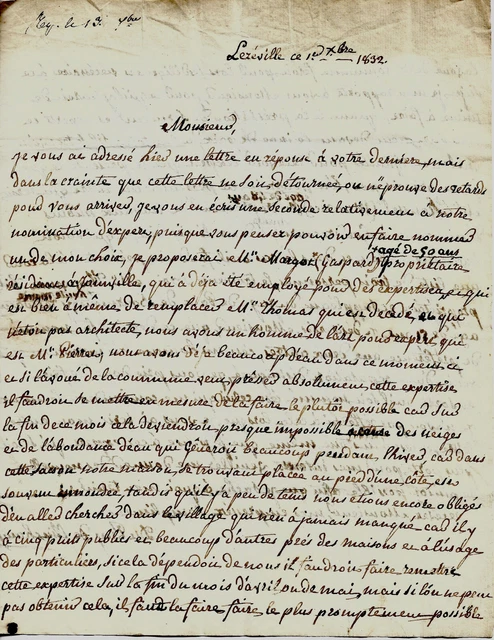 Rep. le 13. Xbre
Lezéville ce 1er Xbre 1832.
Monsieur,
je vous ai adressé hier une lettre en réponse à votre derniere, mais
dans la crainte que cette lettre ne soit détournée, ou n'éprouve des retards
pour vous arriver, je vous en écris une seconde relativement a notre
nomination d'expert, puisque vous pensez pouvoir en faire nommer
un de mon choix, je proposerai Mr. Margot (Gaspard) propriétaire
agé de 50 ans
résidant à Joinville, qui à déja été employé pour des expertises, et qui
est bien à même de remplacer Mr. Thomas qui est décédé, et qui
n'etoit pas architecte, nous avons un homme de l'art pour expert, qui
est Mr. Pierret, nous avons déja beaucoup d'eau dans ce moment ci
et si l'avoué de la commune veut presser absolument cette expertise
il faudroit se mettre en mesure de la faire le plutôt possible car sur
la fin de ce mois cela deviendroit presque impossible a cause des neiges
et de labondance d'eau qui géneroit beaucoup pendant l'hiver car dans
cette saison notre maison se trouvant placée au pied d'une côte, est
souvent innondée, tandis qu'il y a peu de tems nous etions encore obligés
d'en aller chercher dans le village qui n'en à jamais manqué car il y
à cinq puits publics et beaucoup d'autres près des maisons et à l'usage
des particuliers, si cela dépendoit de nous il faudroit faire remettre
cette expertise sur la fin du mois d'avril ou de mai, mais si l'on ne peut
pas obtenir cela, il faut la faire faire le plus promptement possible